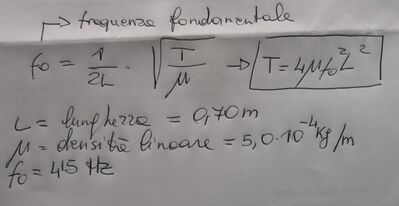 → frequenza fondamentale
f₀ = 1/2L · √T/μ → T = 4μf₀²L²
L = lunghezza = 0,70 m
μ = densità lineare = 5,0·10⁻⁴ Kg/m
f₀ = 415 Hz